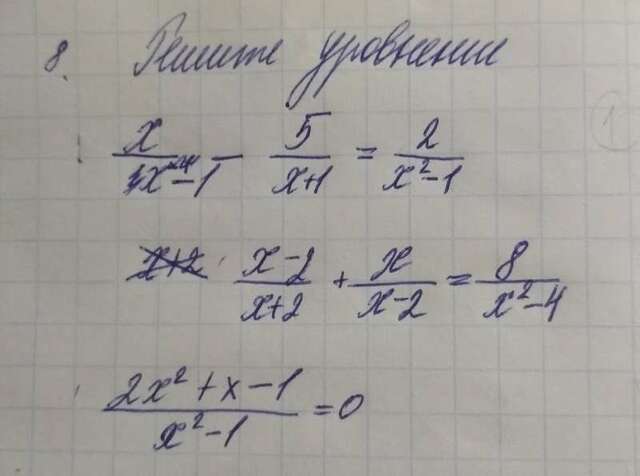 8. Решите уровнение
x/(x-1) - 5/(x+1) = 2/(x²-1)
x+2 (x-2)/(x+2) + x/(x-2) = 8/(x²-4)
(2x²+x-1)/(x²-1) = 0